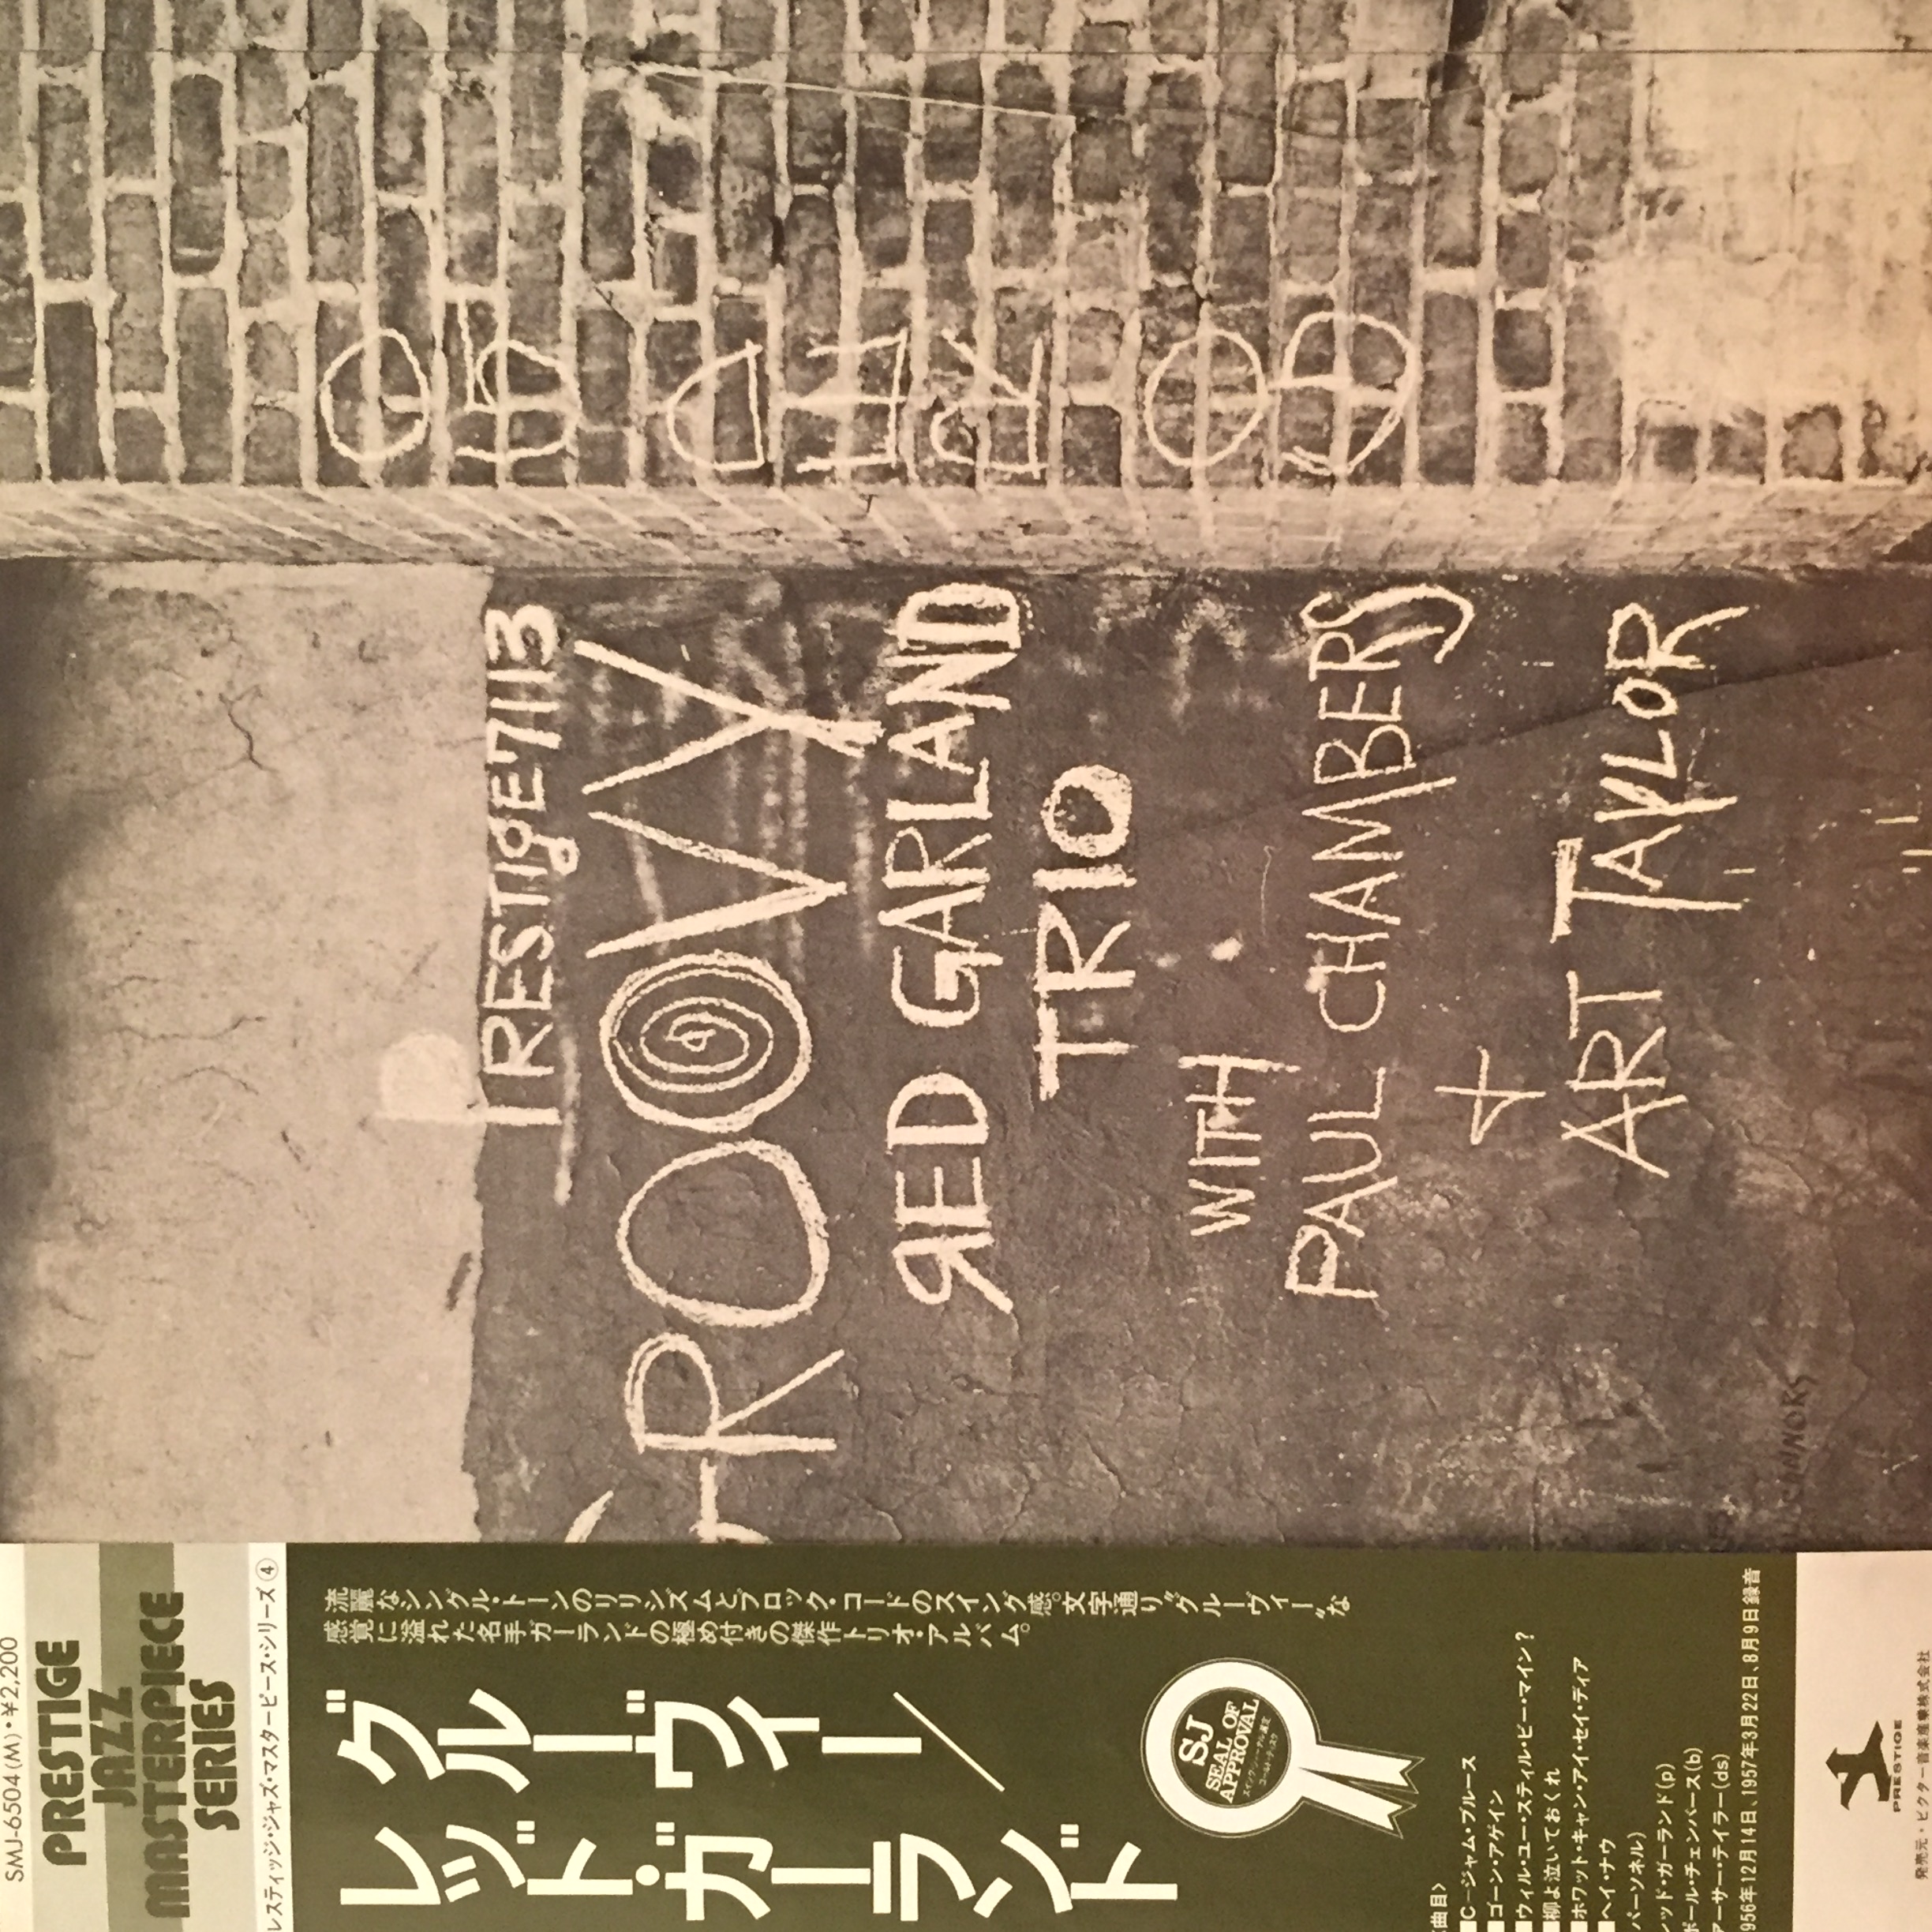 SMJ-6504(M)・¥2,200
PRESTIGE
JAZZ
MASTERPIECE
SERIES
レスティッジ・ジャズ・マスターピース・シリーズ④
流麗なシングル・トーンのリリシズムとブロック・コードのスイング感。文字通り"グルーヴィー"な
感覚に溢れた名手ガーランドの極め付きの傑作トリオ・アルバム。
グルーヴィー/
レッド・ガーランド
SJ
SEAL OF
APPROVAL
曲目〉
■C-ジャム・ブルース
■ゴーン・アゲイン
■ウィル・ユー・スティル・ビー・マイン?
■柳よ泣いておくれ
■ホワット・キャン・アイ・セイ・ディア
■ヘイ・ナウ
パーソネル)
ッド・ガーランド(p)
ポール・チェンバース(b)
アーサー・テイラー(ds)
956年12月14日、1957年3月22日、8月9日録音
PRESTIGE
発売元・ビクター音楽産業株式会社
PRESTIGE 7113
GROOVY
RED GARLAND
TRIO
WITH
PAUL CHAMBERS
+
ART TAYLOR